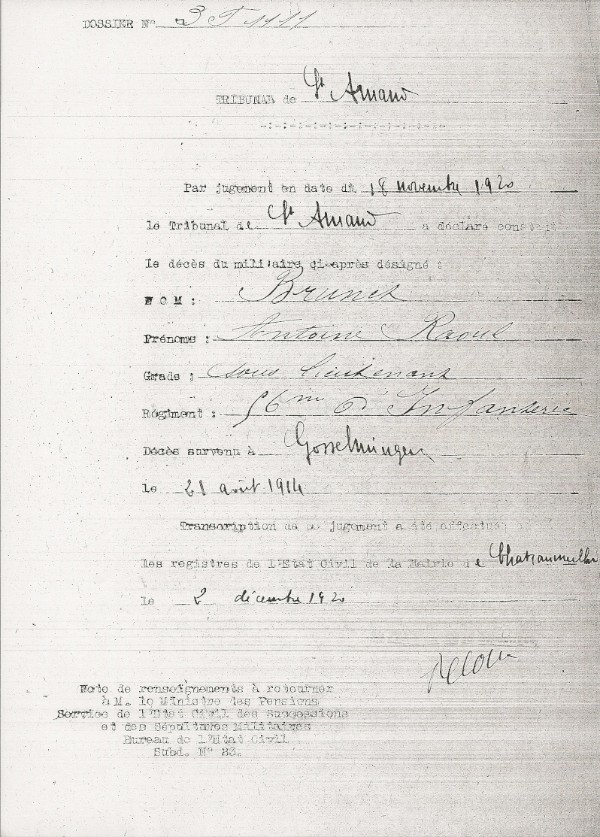 DOSSIER N° 3 T 1411
TRIBUNAL de St Amand
Par jugement en date du 18 novembre 1920
le Tribunal de St Amand a déclaré constant
le décès du militaire ci-après désigné :
NOM : Brunet
Prénoms : Antoine Raoul
Grade : Sous lieutenant
Régiment : 56me d'Infanterie
Décès survenu à Gosselmingen
le 21 août 1914
Transcription de ce jugement a été effectué
les registres de l'Etat Civil de la Mairie de
le 2 décembre 1920
Note de renseignements à retourner
à M. le Ministre des Pensions
Service de l'Etat Civil des Successions
et des Sépultures Militaires
Bureau de l'Etat Civil
Subd. N° 83.